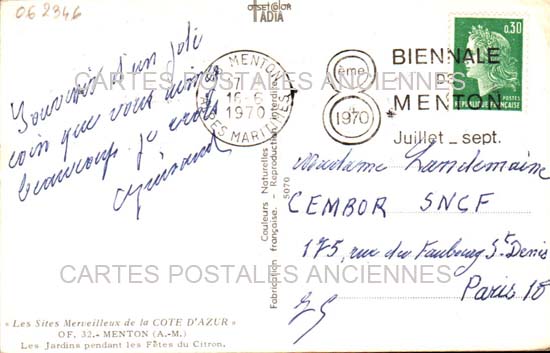 062346
OFFSET COLOR
IADIA
Souvenir d'un joli
coin que vous aimez
beaucoup je crois
MENTON
16-6
1970
ALPES MARITIMES
ème
1970
BIENNALE
DE
MENTON
Juillet_sept.
0,30
POSTES
RÉPUBLIQUE FRANÇAISE
CARTES POSTALES ANCIENNES
Couleurs Naturelles
Fabrication française. - Reproduction interdite.
5070
Madame Landemaine
CEMBOR SNCF
175, rue du Faubourg St Denis
Paris 10
CARTES POSTALES ANCIENNES
« Les Sites Merveilleux de la COTE D'AZUR »
OF. 32.- MENTON (A.-M.)
Les Jardins pendant les Fêtes du Citron.